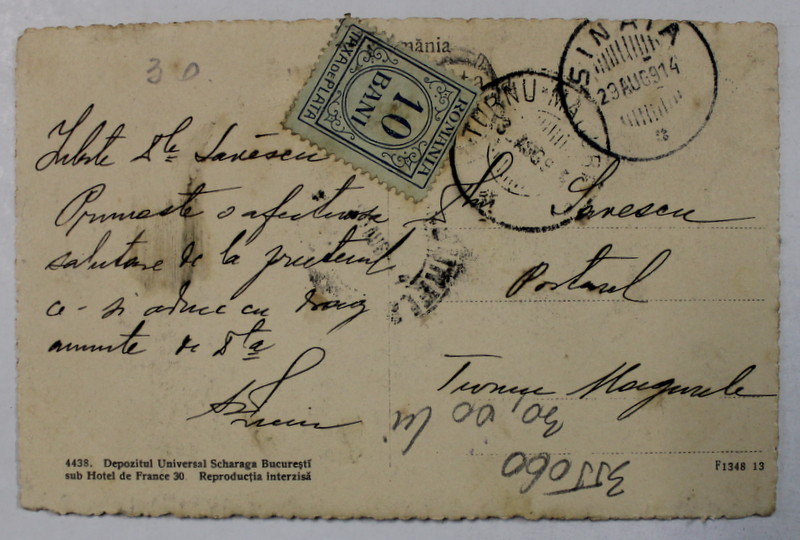 30
România
TAXA DE PLATA
10
BANI
ROMANIA
TURNU-MAGURELE
SINAIA
23 AUG 914
Iubite Dle Savescu
Primeste o afectuoasa
salutare de la prietenul
ce-si aduce cu drag
aminte de Dta
Savescu
Portarul
Turnu Magurele
30,00 lei
4438. Depozitul Universal Scharaga Bucureşti
sub Hotel de France 30 Reproducţia interzisă
F1348 13